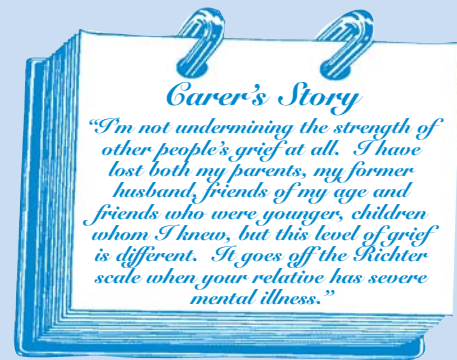 Carer's Story
“I'm not undermining the strength of
other people's grief at all.  I have
lost both my parents, my former
husband, friends of my age and
friends who were younger, children
whom I knew, but this level of grief
is different.  It goes off the Richter
scale when your relative has severe
mental illness.”